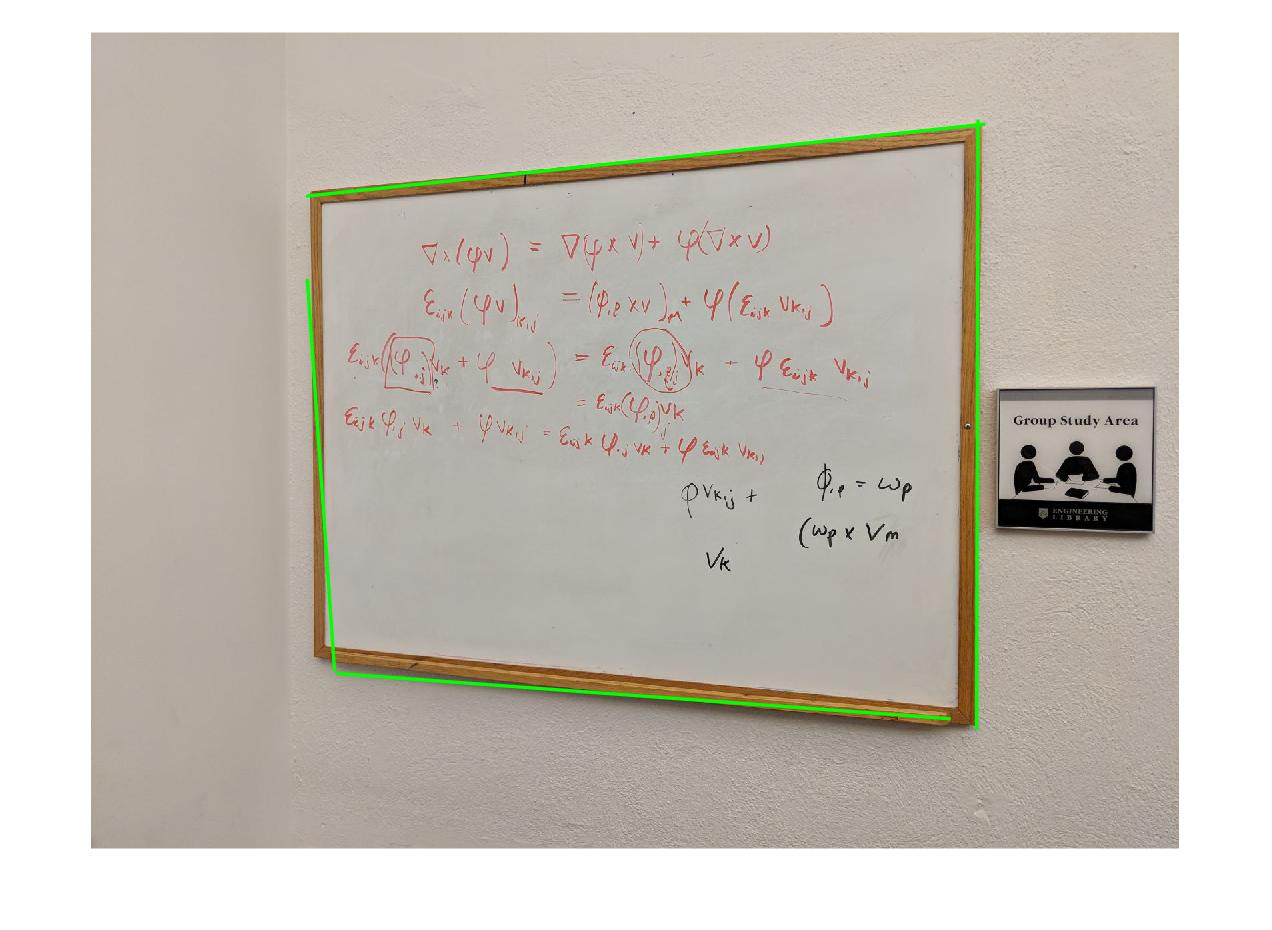 ∇×(φv) = ∇(φ × v) + φ(∇ × v)
εijk(φv)k,j = (φ,p × v),m + φ(εijk vk,j)
εijk((φ,j)vk + φ vk,j) = εijk(φ,j)vk + φ εijk vk,j
= εijk(φ,p),j vk
εijk φ,j vk + φ vk,j = εijk φ,j vk + φ εijk vk,j
φ vk,j + φ,p = ωp
(ωp × Vm
Vk
Group Study Area
ENGINEERING
LIBRARY